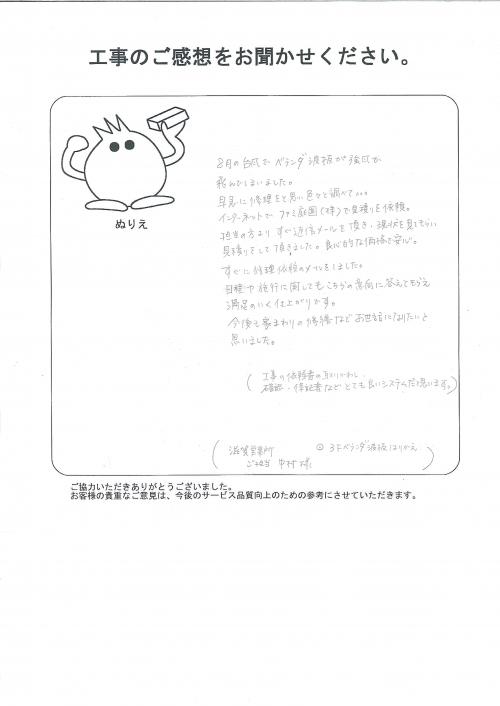 工事のご感想をお聞かせください。
8月の台風でベランダ波板が強風で
飛んでしまいました。
早急に修理をと思い色々と調べて。。。
インターネットで ファミ庭園(株)で見積りを依頼。
担当の方より すぐ返信メールを頂き、現状を見てもらい
見積りをして頂きました。良心的な価格で安心。
すぐに修理依頼のメールをしました。
日程や施行に関してもこちらの意向に答えてもらえ
満足のいく仕上がりです。
今後も家まわりの修繕などお世話になりたいと
思いました。
(工事の依頼書の取りかわし、
確認・保証書など とても良いシステムだと思います。)
(滋賀営業所 ◎ 3Fベランダ波板はりかえ
ご担当 中村様)
ぬりえ
ご協力いただきありがとうございました。
お客様の貴重なご意見は、今後のサービス品質向上のための参考にさせていただきます。